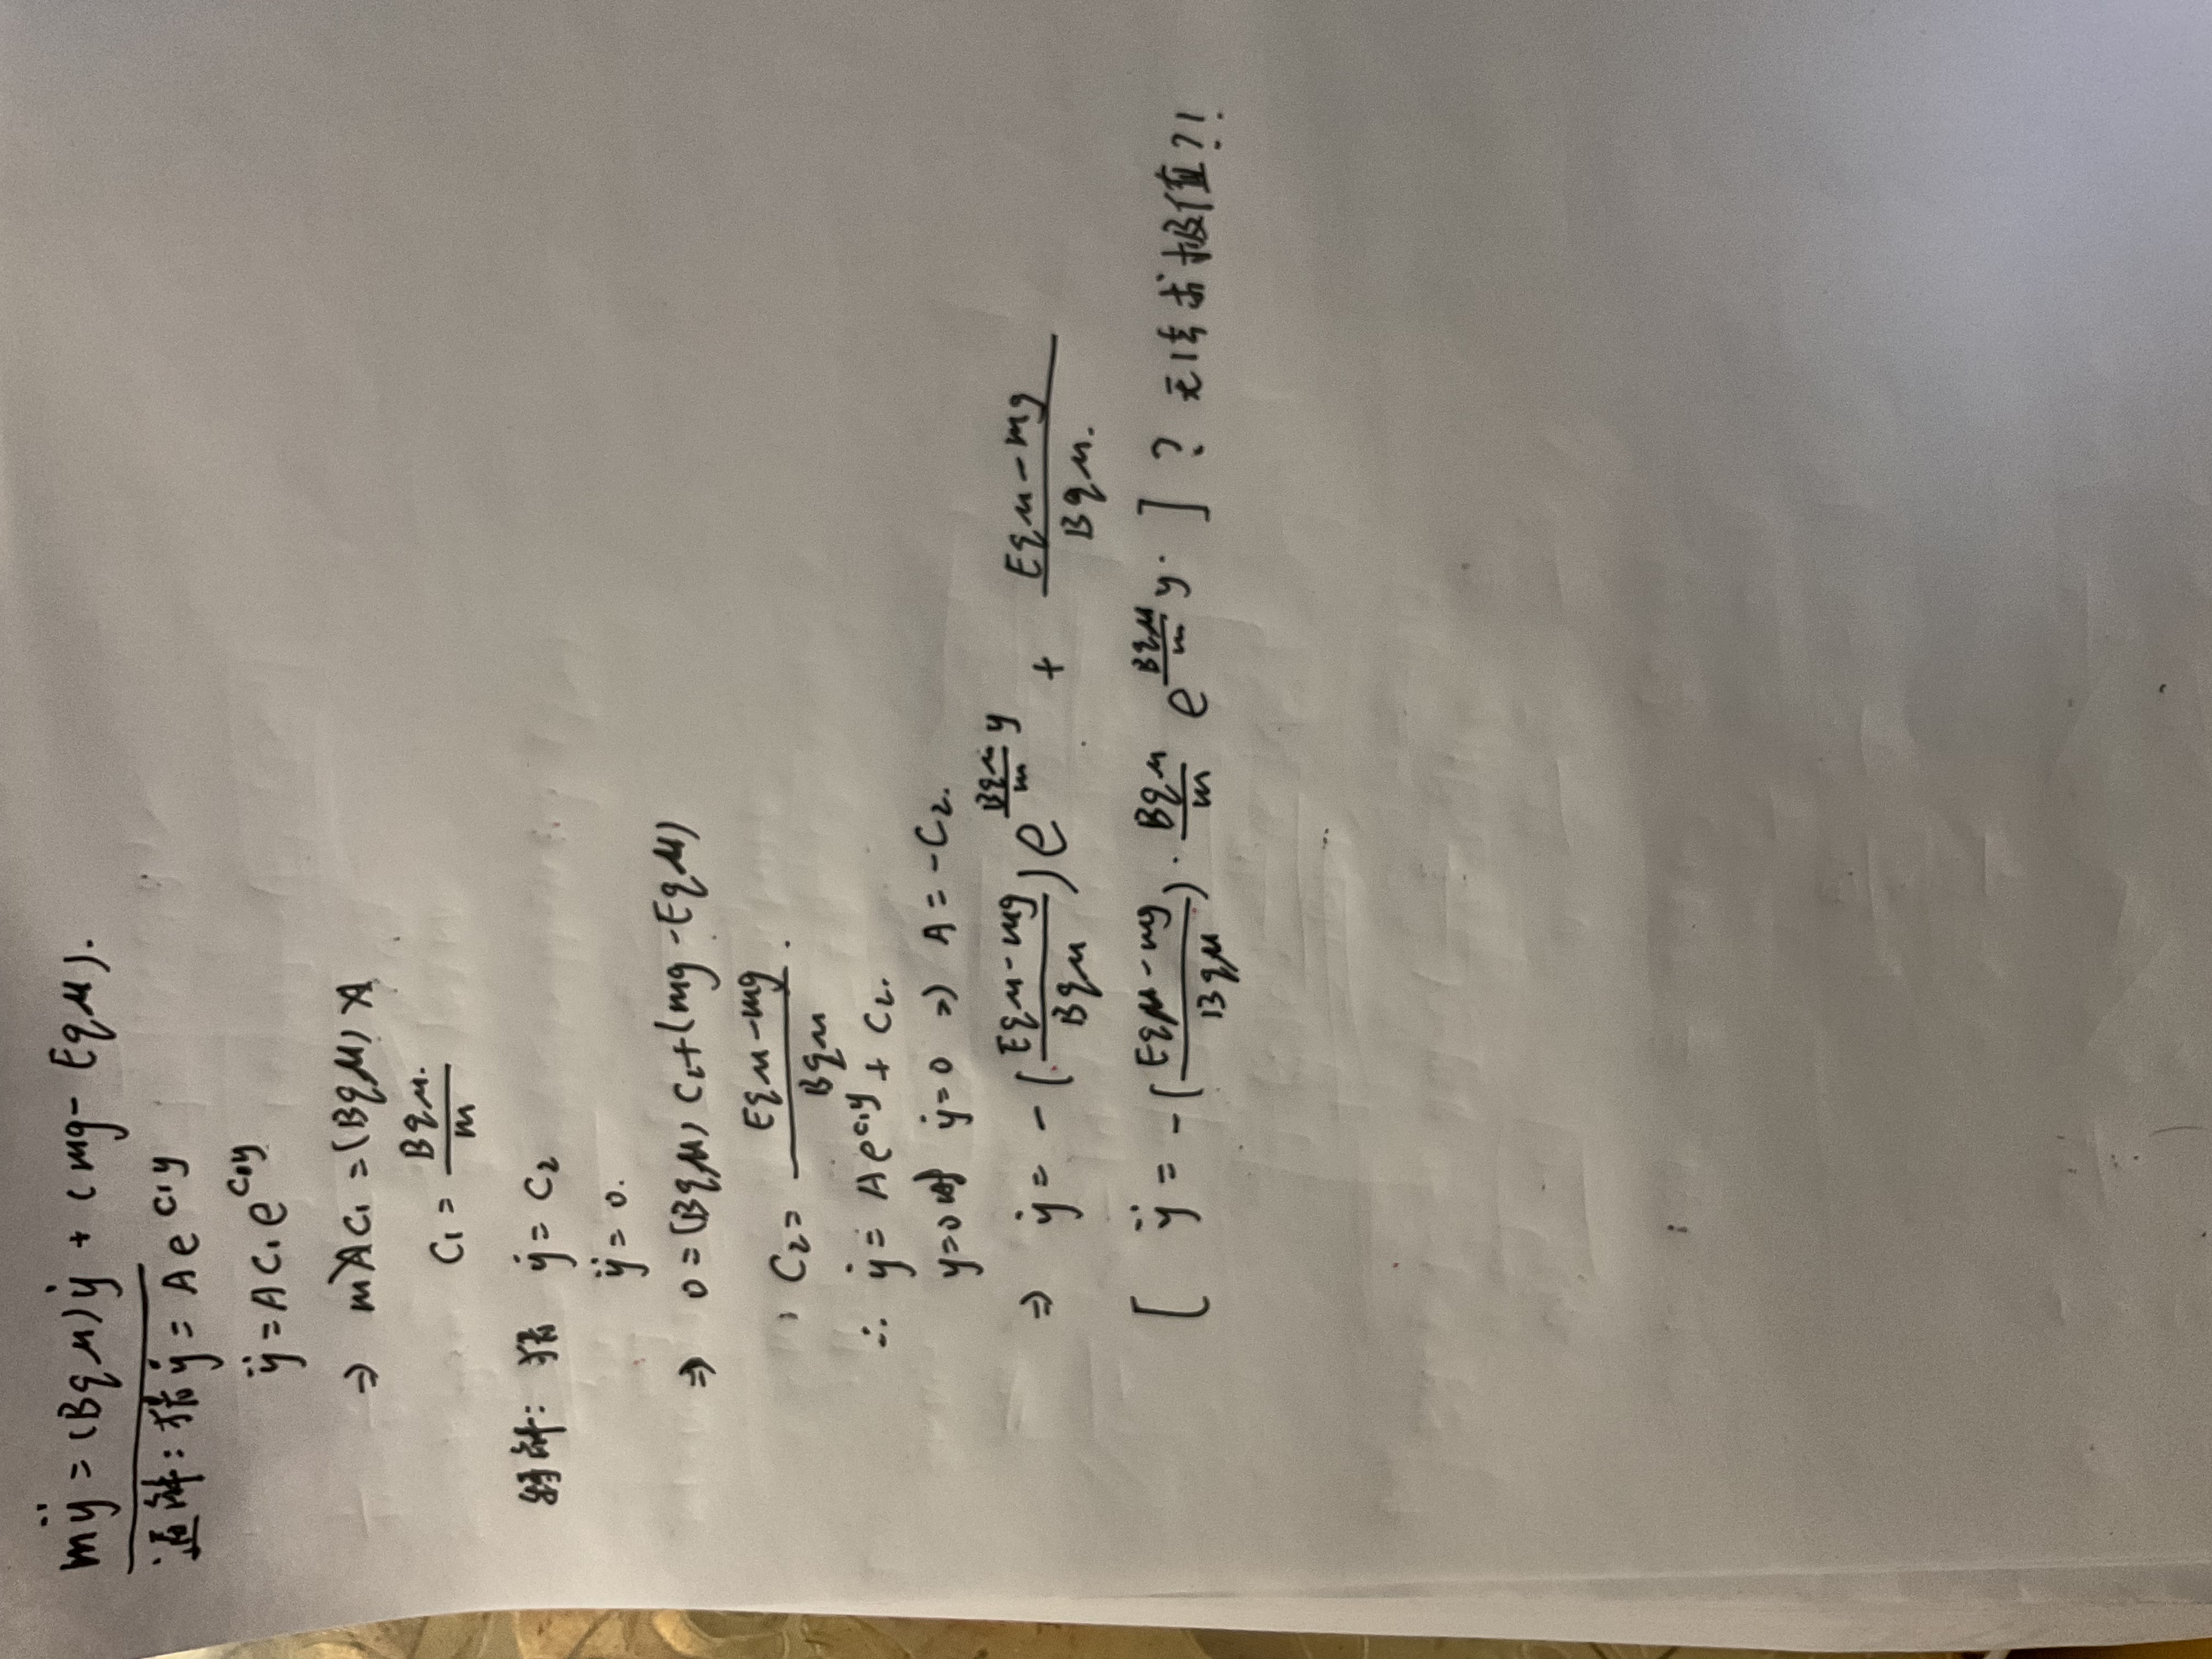 mÿ = (Bqμ)ẏ + (mg - Eqμ).
通解: 猜 ẏ = Ae^{c₁y}
ÿ = AC₁e^{c₁y}
⇒ mAC₁ = (Bqμ) A
C₁ = \frac{Bqμ.}{m}
特解: 猜 ẏ = C₂
ÿ = 0.
⇒ 0 = (Bqμ) C₂ + (mg - Eqμ)
C₂ = \frac{Eqμ - mg}{Bqμ}.
∴ ẏ = Ae^{c₁y} + C₂.
y=0时 ẏ=0 ⇒ A = -C₂.
⇒ ẏ = -(\frac{Eqμ - mg}{Bqμ})e^{\frac{Bqμ}{m}y} + \frac{Eqμ - mg}{Bqμ.}
[ ÿ = -(\frac{Eqμ - mg}{Bqμ}) · \frac{Bqμ}{m} e^{\frac{Bqμ}{m}y}. ] ? 无法求极值?!